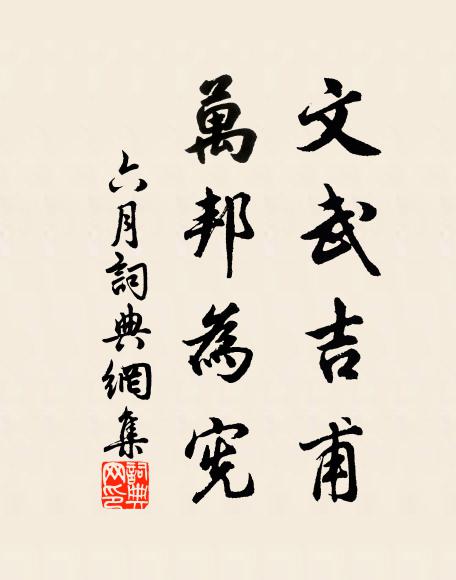 文武吉甫
萬邦為憲
六月詞典網集
詞典
网印